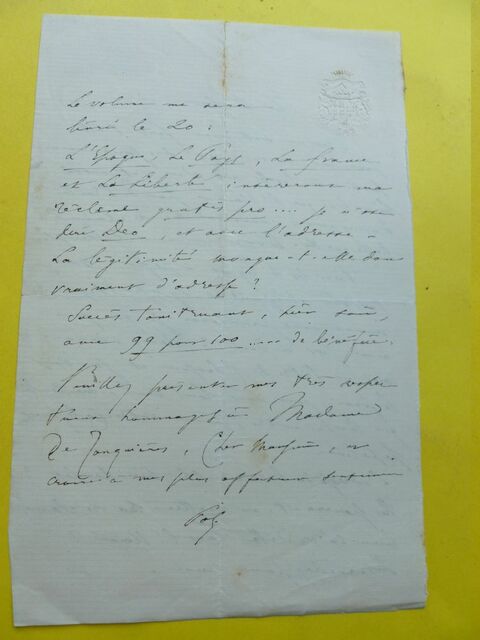 Le volume me sera
livré le 20 :
L'Epoque, Le Pays, La france
et La Liberté inséreront ma
réclame gratis pro .... je n'ose
dire Deo, et avec l'adresse –
La légitimité manque-t-elle donc
vraiment d'adresse ?
Succès tonitruant, hier soir,
avec 99 pour 100 ..... de bénéfice.
Veuillez présenter mes très respec
tueux hommages à Madame
De Jonquières, Cher Monsieur, et
croire à mes plus affectueux sentimen